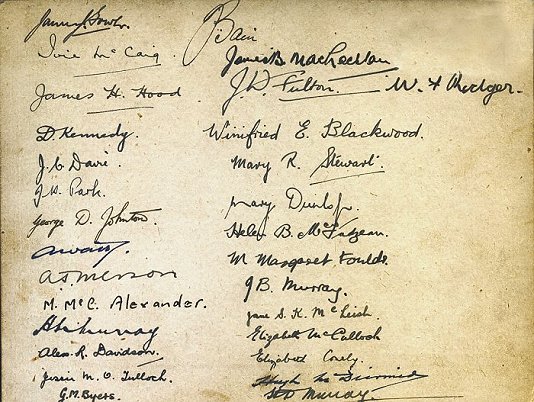 James Fowler
Bain
Ivie McCaig
James B MacLachlan
James H. Hood
J. D. Fulton.
W. F. Rodger.
D. Kennedy.
Winifred E. Blackwood.
J. C. Davie.
Mary R. Stewart
J. W. Park.
Mary Dunlop.
George D. Johnston.
Helen B. McFadzean
M Margaret Foulds.
J B. Murray.
M. McC. Alexander.
Jane S. K. McLeish
Murray
Elizabeth McCulloch
Alex. R. Davidson.
Elizabeth
Jessie M. O. Tulloch.
Hugh McDiarmid
G. M. Byers.
Murray